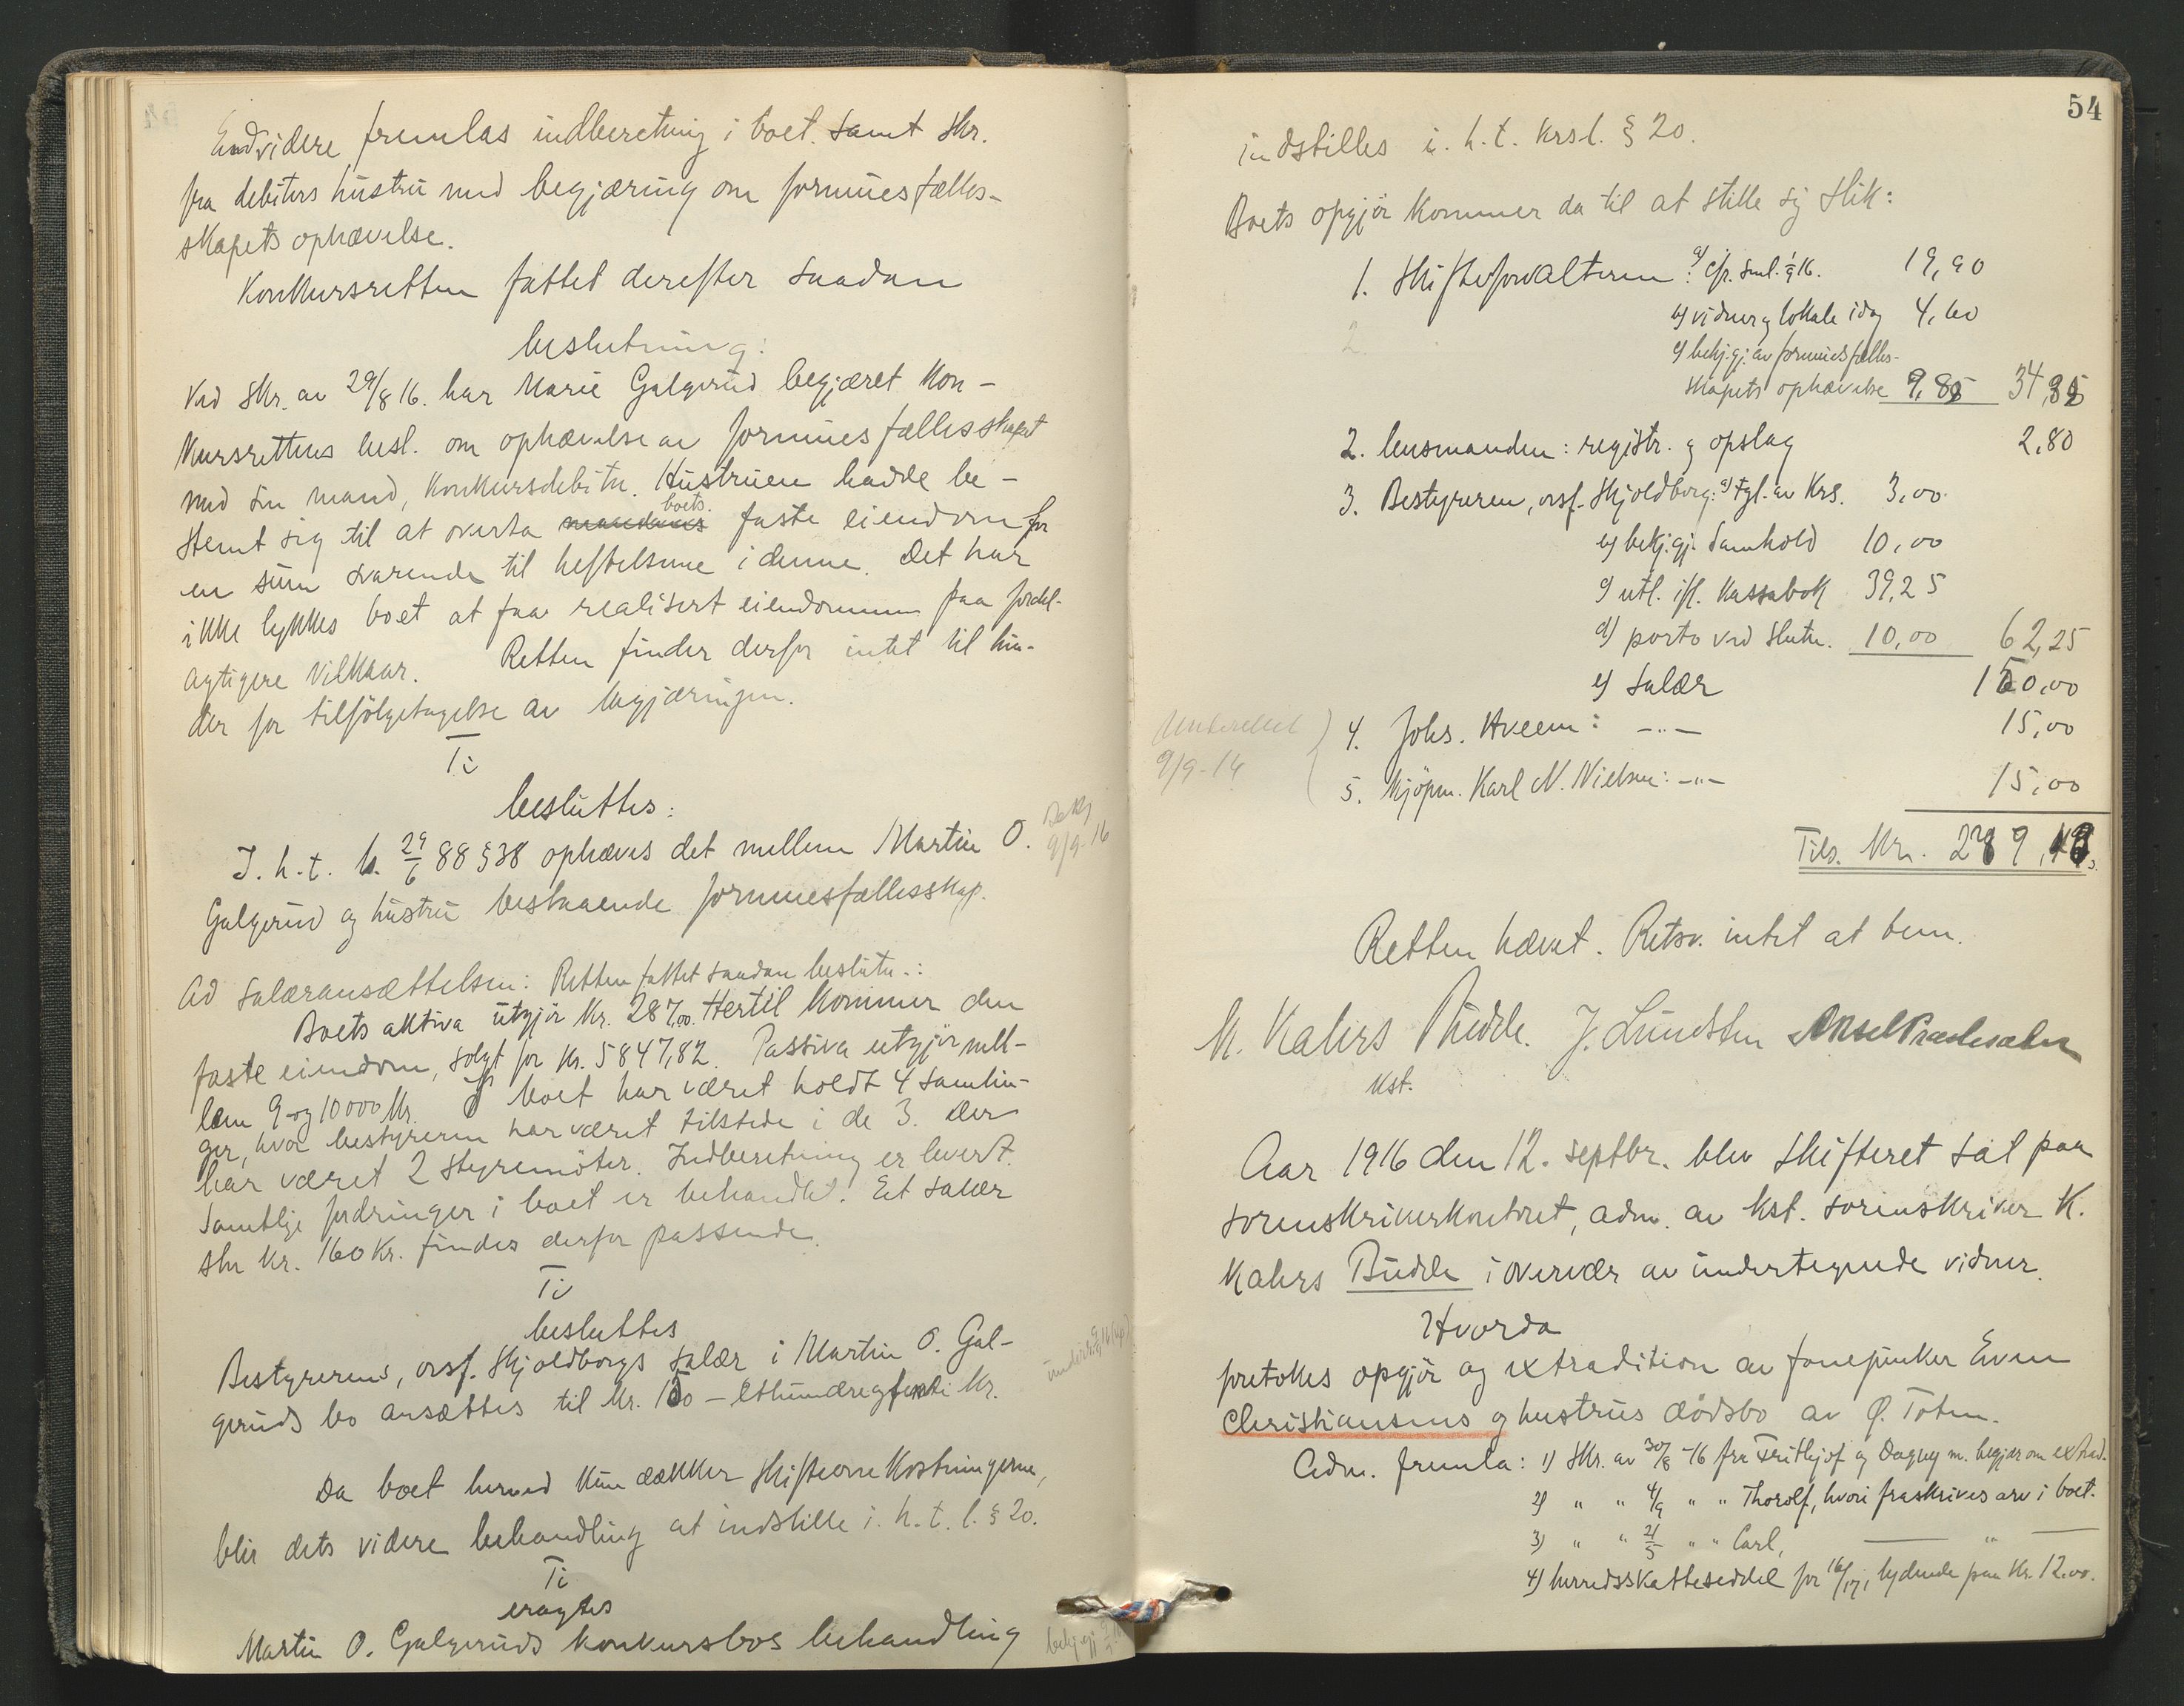 Endvidere fremlas indberetning i boet samt skr.
fra debitors hustru med begjæring om formuesfælles-
skapets ophævelse.
Konkursretten fattet derefter saadan
beslutning:
Ved skr. av 29/8 16. har Marie Galgerud begjæret kon-
kursrettens besl. om ophævelse av formuesfællesskapet
med sin mand, konkursdebitor. Hustruen hadde be-
boets
stemt sig til at overta faste eiendom for
en sum svarende til heftelserne i denne. Det har
ikke lykkes boet at faa realisert eiendommen paa fordel-
agtigere vilkaar. Retten finder derfor intet til hin-
der for tilfølgetagelse av begjæringen.
Ti
besluttes:
I. h. t. l. 29/6 88 § 38 ophæves det mellem Martin O.
Galgerud og hustru bestaaende formuesfællesskap.
Bekj
9/9-16
Ad salæransættelsen: Retten fattet saadan beslutn.:
Boets aktiva utgjør kr. 287,00. Hertil kommer den
faste eiendom, solgt for kr. 5847,82. Passiva utgjør mell-
lem 9 og 10000 kr. I boet har været holdt 4 samlin-
ger, hvor bestyreren har været tilstede i de 3. Der
har været 2 styremøter. Indberetning er levert.
Samtlige fordringer i boet er behandlet. Et salær
stor kr. 160 kr. findes derfor passende.
Ti
besluttes
Bestyrerens, orsf. Skjoldborgs salær i Martin O. Gal-
geruds bo ansættes til kr. 150 - ethundreogfemti kr.
Da boet herved kun dækker skifteomkostningerne,
blir dets videre behandling at indstille i. h. t. l. § 20.
Ti
eragtes
Martin O. Galgeruds konkursbos behandling
54
indstilles i. h. t. krsl. § 20.
Boets opgjør kommer da til at stille sig slik:
1. Skifteforvalteren: a) cfr. saml. 1/9 16. 19,90
b) vidner og lokale idag 4,60
c) bekj.gj. av formuesfælles-
skapets ophævelse 9,85 34,35
2. lensmanden: registr. og opslag 2,80
3. Bestyreren, orsf. Skjoldborg: a) tgl. av krs. 3,00
b) bekj.gj. samhold 10,00
c) utl. ifl. kassabok 39,25
d) porto ved slutn. 10,00 62,25
e) salær 150,00
Underrettet
9/9-16
4. Johs. Hveem: -"- 15,00
5. Kjøpm. Karl N. Nielsen: -"- 15,00
Tils. Kr. 279,40
Retten hævet. Retsv. intet at bem.
K. Kahrs Budde. J. Lundsten
kst.
Aar 1916 den 12. septbr. blev skifteret sat paa
sorenskriverkontoret, adm. av kst. sorenskriver K.
Kahrs Budde i overvær av undertegnede vidner.
Hvorda
foretokes opgjør og extradition av
Christiansens og hustrus dødsbo av Ø. Toten.
Adm. fremla: 1) skr. av 30/8-16 fra Frithjof og Dagny m. begjær om extrad.
2) " " 4/9 " " Thorolf, hvori fraskrives arv i boet.
3) " " 21/5 " " Carl, — " —
4) herredsskatteseddel for 16/17, lydende paa kr. 12.00.